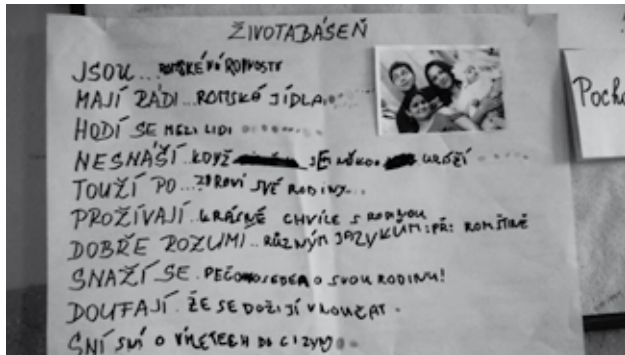 ŽIVOTABÁSEŇ
JSOU... ROMSKÉ NÁRODNOSTI
MAJÍ RÁDI..ROMSKÁ JÍDLA....
HODÍ SE MEZI LIDI ........
NESNÁŠÍ..KDYŽ JE NĚKDO URÁŽÍ ....
TOUŽÍ PO...ZDRAVÍ SVÉ RODINY...
PROŽÍVAJÍ..KRÁSNÉ CHVÍLE S RODINOU
DOBŘE ROZUMÍ..RŮZNÝM JAZYKŮM:PŘ: ROMŠTINĚ
SNAŽÍ SE. O SVOU RODINU!
DOUFAJÍ. ŽE SE DOŽIJÍ VNOUČAT.
SNÍ SNÍ O VÝLETECH DO CIZINY...
Pocho